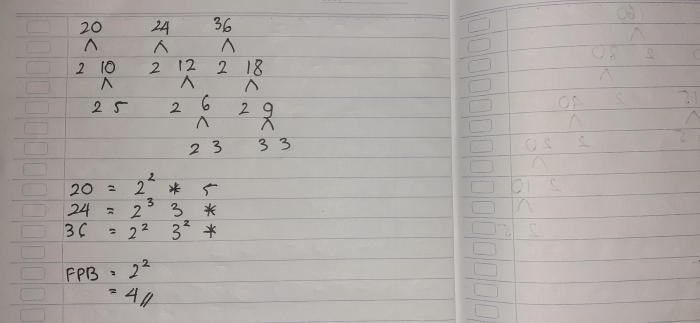 20 24 36
2 10 2 12 2 18
2 5 2 6 2 9
2 3 3 3
20 = 2² * 5
24 = 2³ 3 *
36 = 2² 3² *
FPB = 2²
= 4 //